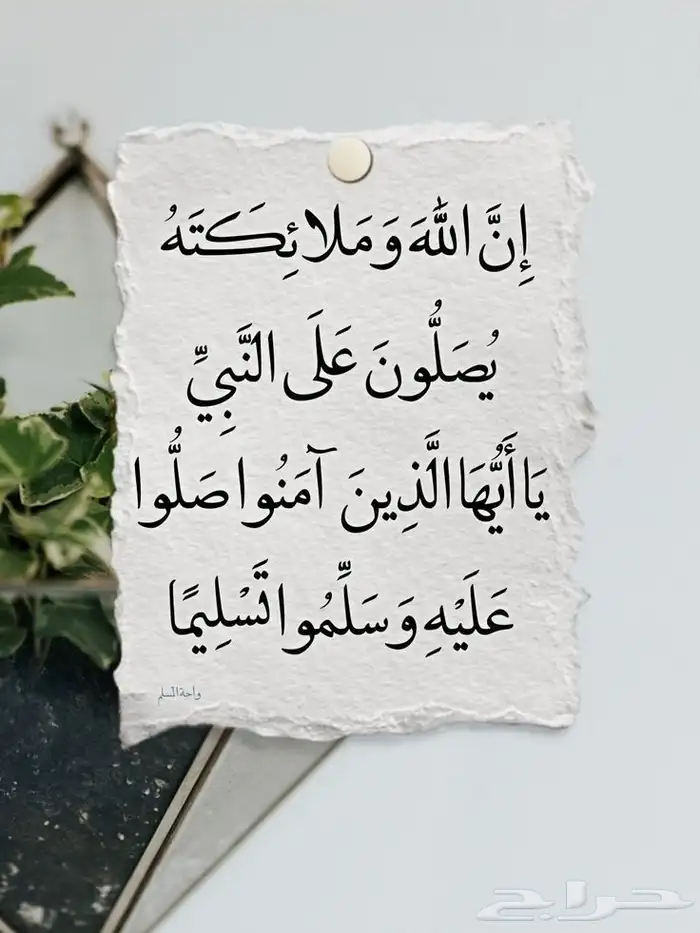 إِنَّ اللَّهَ وَمَلائِكَتَهُ
يُصَلُّونَ عَلَى النَّبِيِّ
يَا أَيُّهَا الَّذِينَ آمَنُوا صَلُّوا
عَلَيْهِ وَسَلِّمُوا تَسْلِيمًا
واحة المسلم
حراج